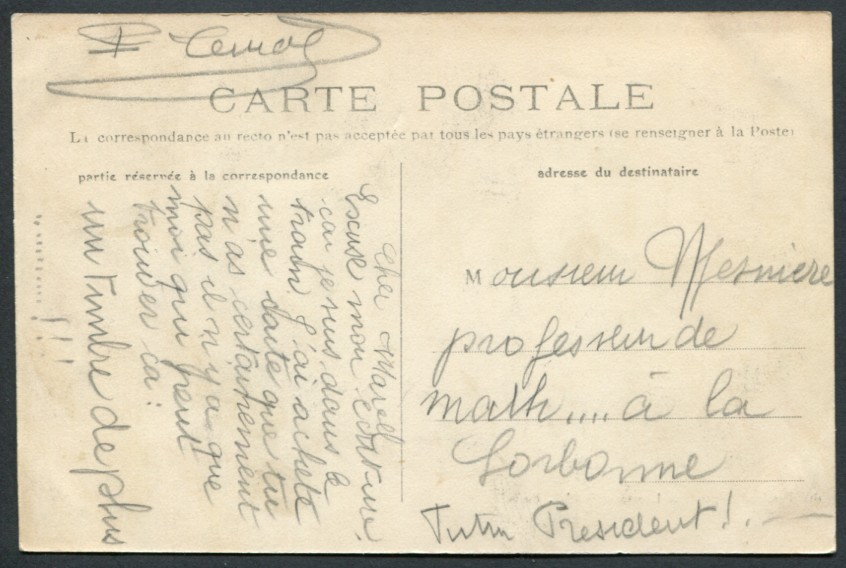 CARTE POSTALE
La correspondance au recto n'est pas acceptée par tous les pays étrangers (se renseigner à la Poste)
partie réservée à la correspondance
Cher Marcel
Excuse mon écriture
car je suis dans le
train. J'ai acheté
une carte que tu
n'as certainement
pas il n'y a que
moi qui peut
trouver ça:
un timbre de plus
!!!
adresse du destinataire
Monsieur Mesnière
professeur de
math.... à la
Sorbonne
Futur President!.